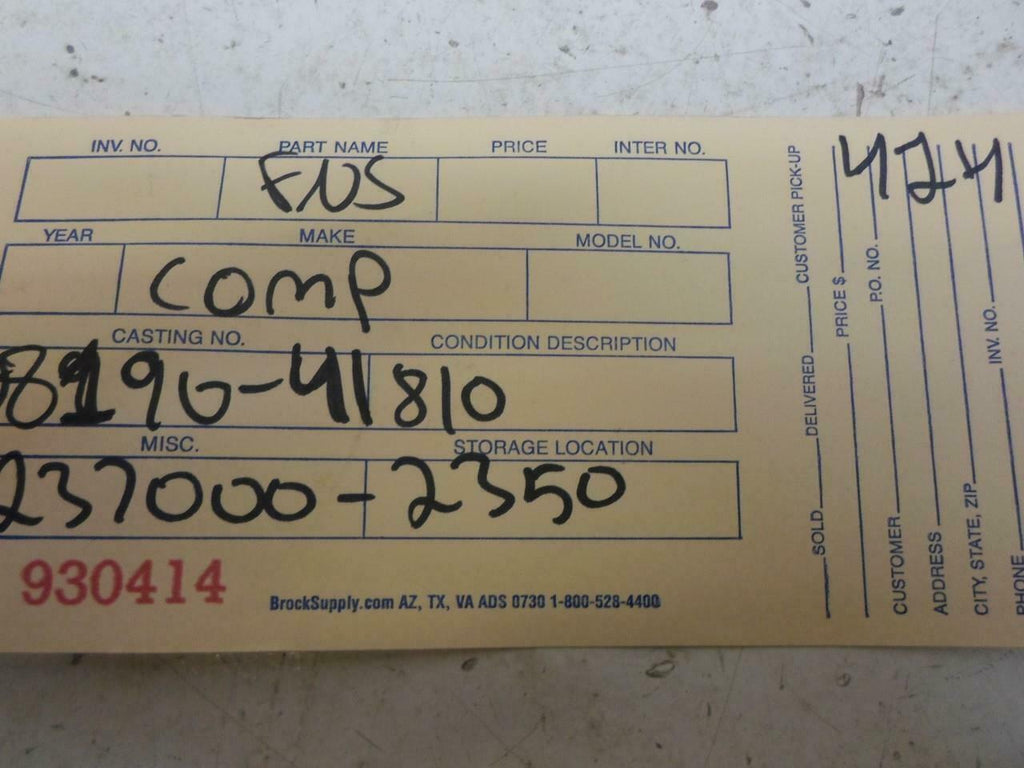 INV. NO. PART NAME PRICE INTER NO.
FUS
YEAR MAKE MODEL NO.
comp
CASTING NO. CONDITION DESCRIPTION
8190-41810
MISC. STORAGE LOCATION
237000-2350
930414
BrockSupply.com AZ, TX, VA ADS 0730 1-800-528-4400
SOLD DELIVERED CUSTOMER PICK-UP
PRICE $
P.O. NO.
CUSTOMER
ADDRESS
CITY, STATE, ZIP
INV. NO.
PHONE
424